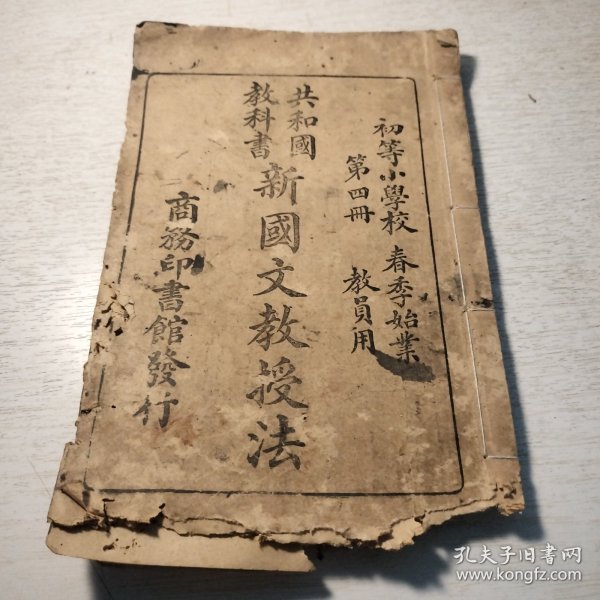 初等小學校 春季始業
第四冊 教員用
共和國
教科書
新國文教授法
商務印書館發行
孔夫子旧书网
www.kongfz.com